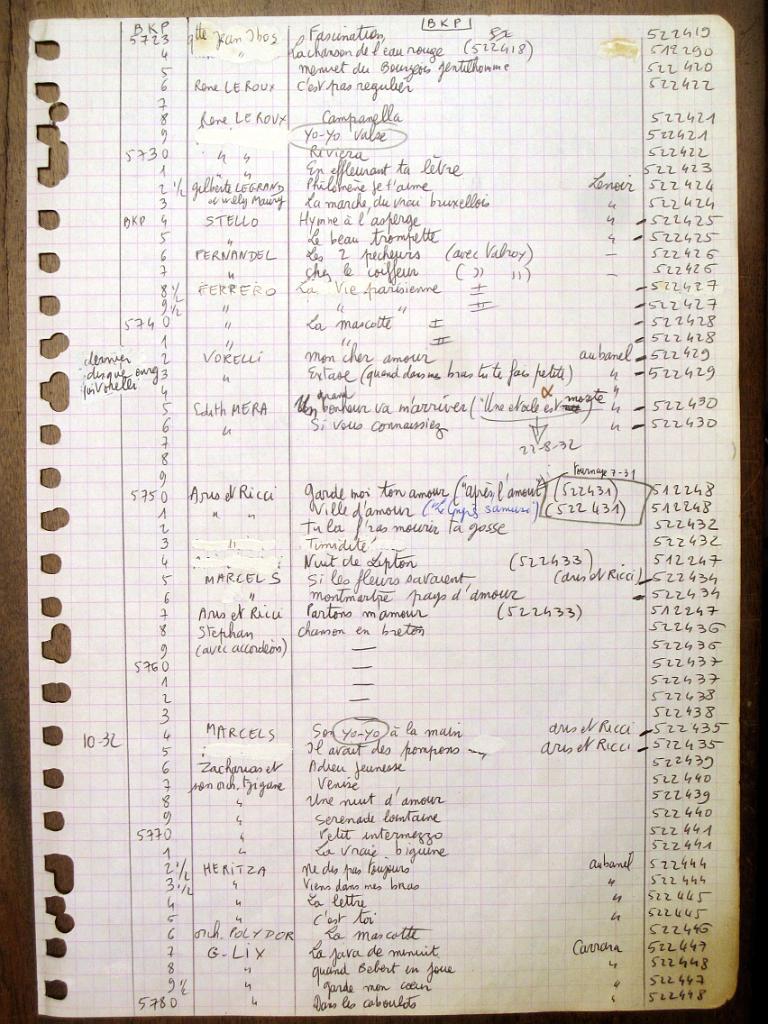 BKP [BKP]
5723 Jean Ibos Fascination 522419
4 " La chanson de l'eau rouge (522418) 512290
5 menuet du Bourgeois gentilhomme 522420
6 René LEROUX c'est pas regulier 522422
7
8 René LEROUX Campanella 522421
9 Yo-Yo Valse 522421
5730 " " Riviera 522422
1 " " En effleurant ta lèvre 522423
2 1/2 gilberte LEGRAND Philomène je t'aime Lenoir 522424
3 et Willy Maury La marche du vrai bruxellois " 522424
BKP 4 STELLO Hymne à l'asperge " 522425
5 " Le beau trompette " 522425
6 FERNANDEL Les 2 pecheurs (avec Valroy) — 522426
7 " chez le coiffeur ( )) )) ) — 522426
8 1/2 FERRERO La Vie parisienne I 522427
9 1/2 " " " II 522427
5740 " La mascotte I 522428
1 " " II 522428
dernier disque enreg par Vorelli
2 VORELLI mon cher amour aubanel 522429
3 " Extase (quand dans mes bras tu te fais petite) " 522429
4 "
5 Edith MERA Un grand bonheur va m'arriver ("Une etoile est morte") " 522430
6 " Si vous connaissiez " 522430
7 22-8-32
8
9 tournage 7-31
5750 Aris et Ricci Garde moi ton amour ("après l'amour") (522431) 512248
1 " " Ville d'amour (522431) 512248
2 Tu la f'ras mourir ta gosse 522432
3 " Timidité 522432
4 Nuit de Lipton (522433) 512247
5 MARCELS Si les fleurs savaient (aris et Ricci) 522434
6 " montmartre pays d'amour 522434
7 Aris et Ricci Partons m'amour (522433) 512247
8 Stephan chanson en breton 522436
9 (avec accordéon) — 522436
5760 — 522437
1 — 522437
2 — 522438
3 522438
10-32 4 MARCELS Son yo-yo à la main aris et Ricci 522435
5 Il avait des pompons aris et Ricci 522435
6 Zacharias et Adieu jeunesse 522439
7 son orch. tzigane Venise 522440
8 " Une nuit d'amour 522439
9 " Serenade lointaine 522440
5770 " Petit intermezzo 522441
1 " La vraie biguine 522441
2 1/2 HERITZA ne dis pas toujours aubanel 522444
3 1/2 " Viens dans mes bras " 522444
4 " La lettre " 522445
5 " C'est toi " 522445
6 orch. POLYDOR La mascotte 522446
7 G. LIX La java de minuit Carrara 522447
8 " quand Bebert en joue " 522448
9 1/2 " garde mon cœur " 522447
5780 " Dans les caboulots " 522448